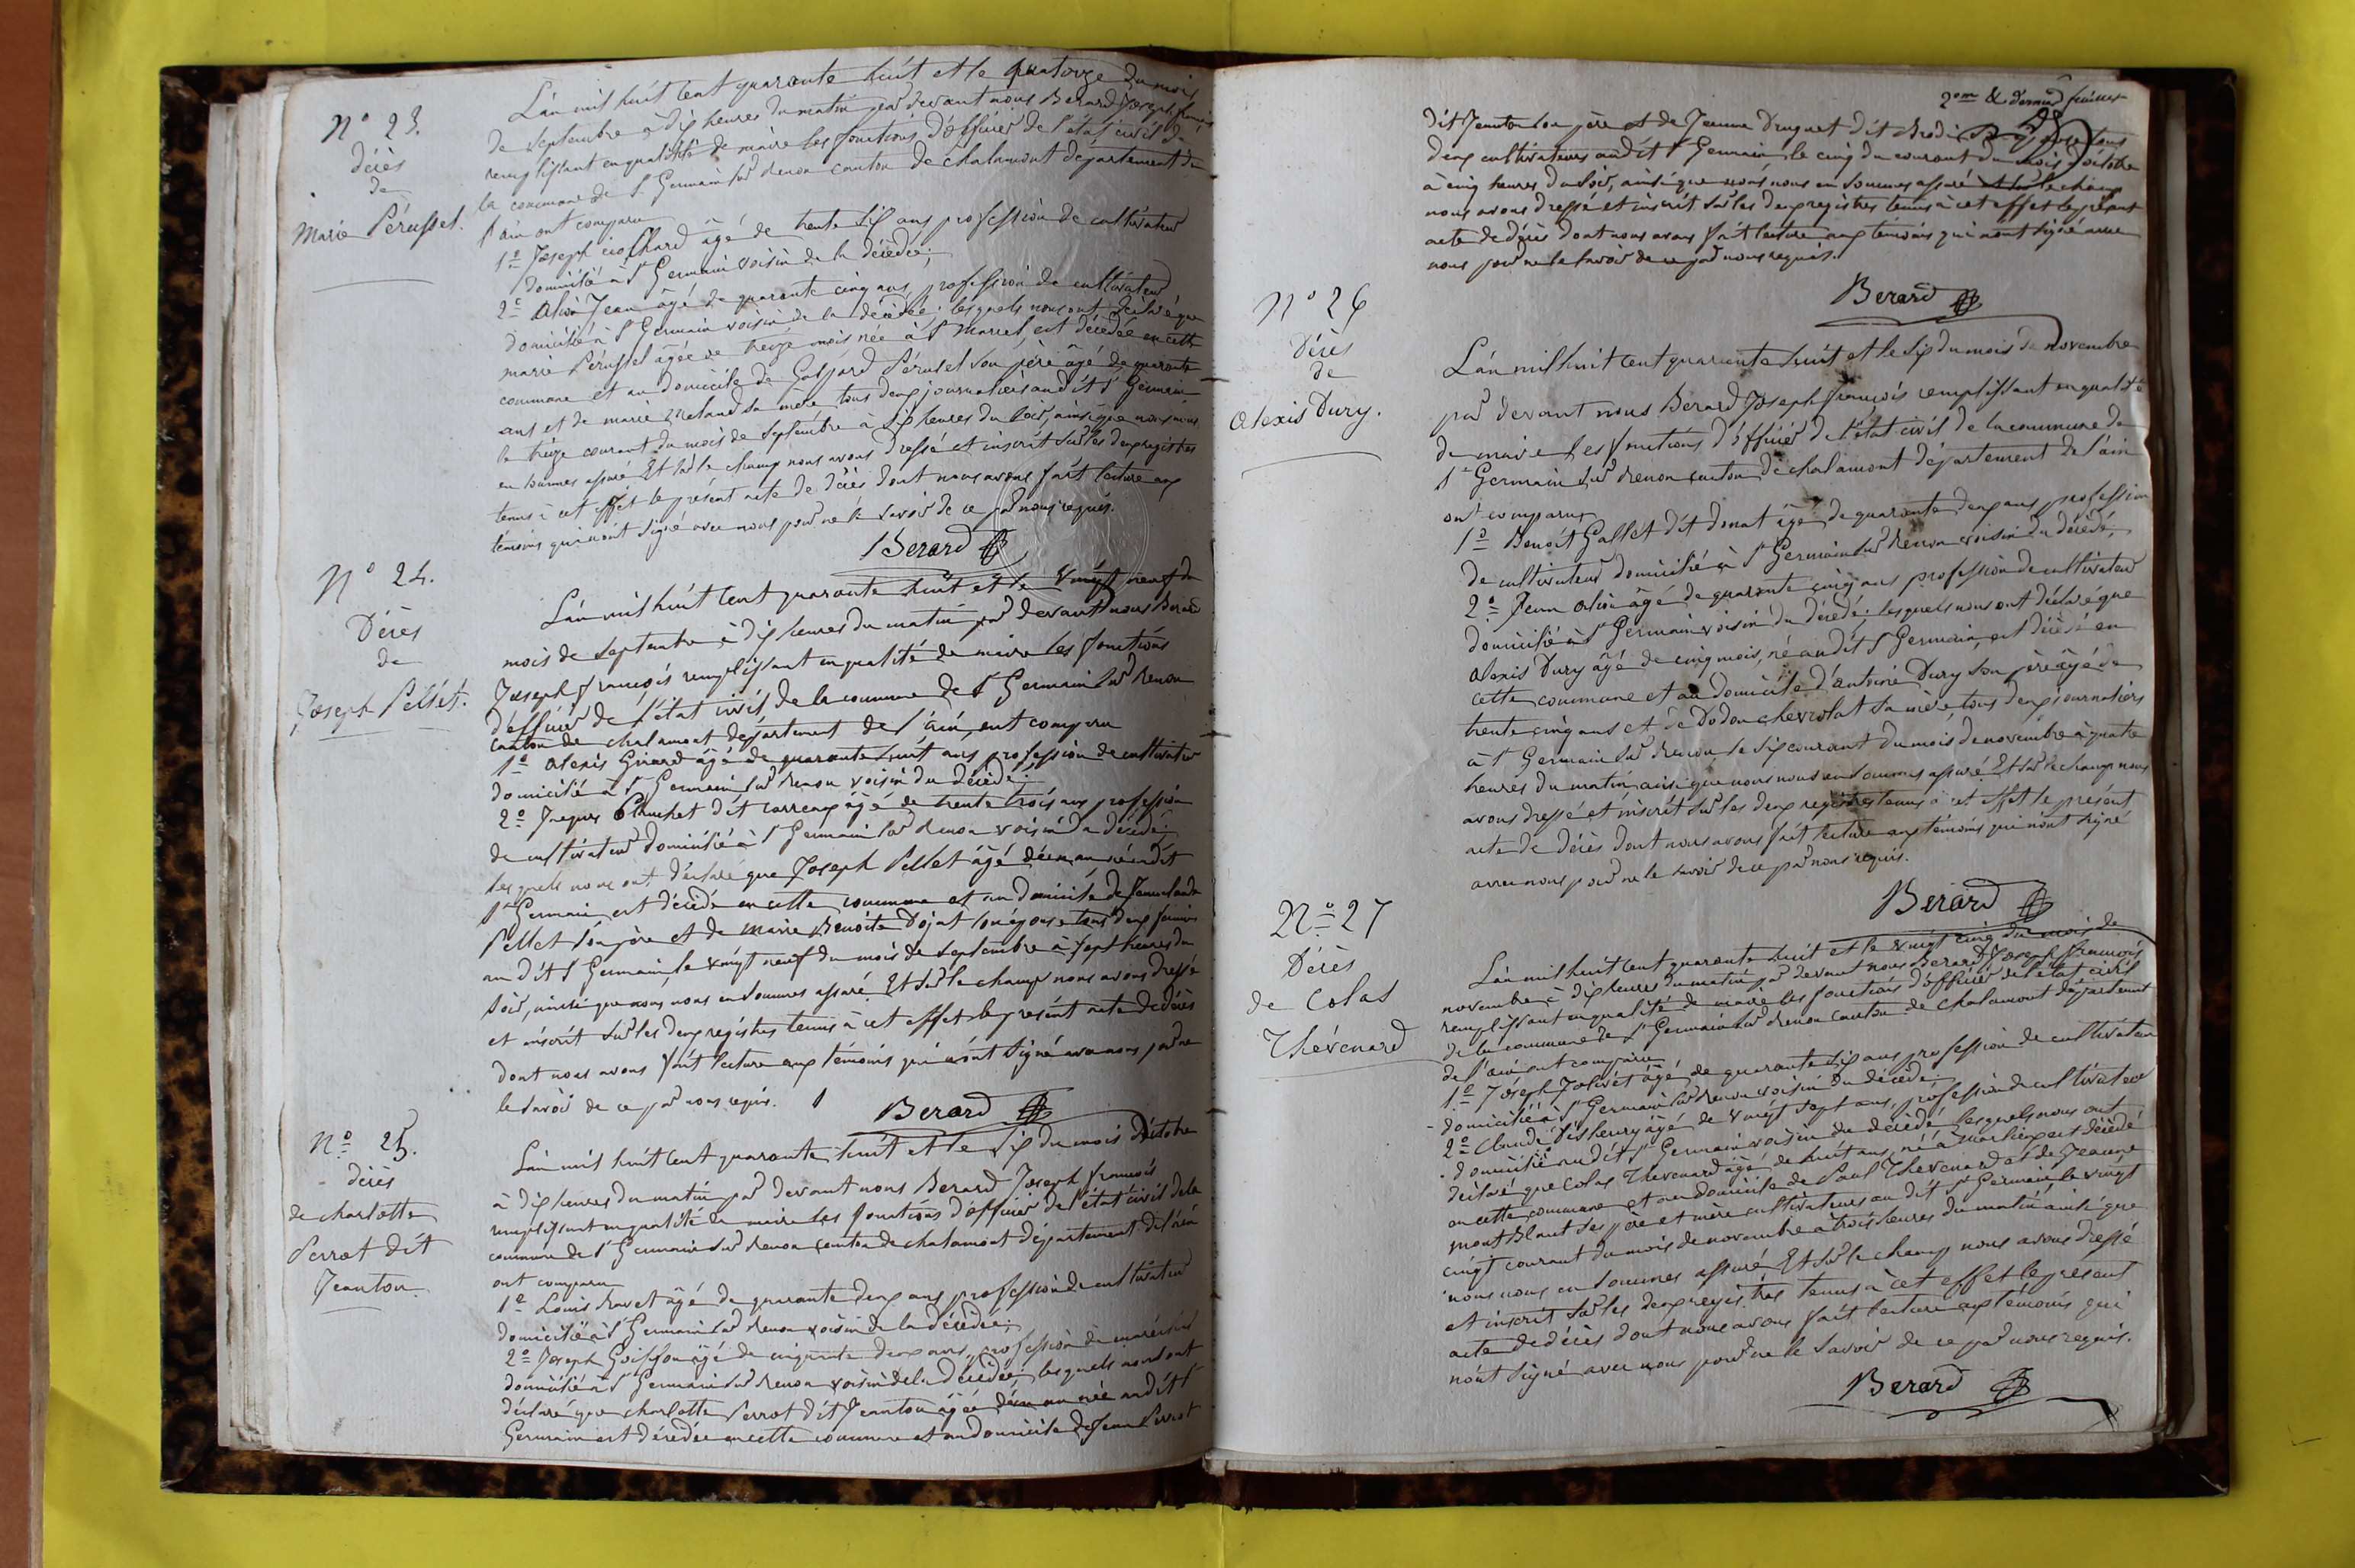 N° 23.
décès
de
Marie Pérussel.
L'an mil huit cent quarante huit et le quatorze du mois
de septembre à dix heures du matin par devant nous Berard Joseph françois
remplissant en qualité de maire les fonctions d'officier de l'état civil de
la commune de St Germain sur renon canton de chalamont département de
l'ain ont comparu
1° Joseph âgé de trente six ans profession de cultivateur
domicilié à St Germain voisin de la décédée;
2° Jean âgé de quarante cinq ans, profession de cultivateur
domicilié à St Germain voisin de la décédée; lesquels nous ont déclaré que
marie Pérussel âgée de treize mois née à St Marcel, est décédée en cette
commune et au domicile de Gaspard Pérusel son père âgé de quarante
ans et de marie sa mère tous deux journaliers audit St Germain
le treize courant du mois de septembre à six heures du soir, ainsi que nous nous
en sommes assuré Et sur le champ nous avons dressé et inscrit sur les deux registres
tenus à cet effet le présent acte de décès dont nous avons fait lecture aux
témoins qui n'ont signé avec nous pour ne le savoir de ce par nous requis.
Berard
N° 24.
Décès
de
Joseph Pellet.
L'an mil huit cent quarante huit et le vingt neuf du
mois de septembre à dix heures du matin par devant nous Berard
Joseph françois remplissant en qualité de maire les fonctions
d'officier de l'état civil de la commune de St Germain sur renon
canton de chalamont département de l'ain, ont comparu
1° alexis Girard âgé de quarante huit ans profession de cultivateur
domicilié à St Germain sur renon voisin du décédé;
2° Jaques dit âgé de trente trois ans profession
de cultivateur domicilié à St Germain sur renon voisin du décédé;
lesquels nous ont déclaré que Joseph Pellet âgé né audit
St Germain est décédé en cette commune et au domicile de
Pellet son père et de marie Benoite son épouse tous deux
au dit St Germain, le vingt neuf du mois de septembre à sept heures du
soir, ainsi que nous nous en sommes assuré Et sur le champ nous avons dressé
et inscrit sur les deux registres tenus à cet effet le présent acte de décès
dont nous avons fait lecture aux témoins qui n'ont signé avec nous pour ne
le savoir de ce par nous requis.
Berard
N° 25.
décès
de charlotte
Perrot dit
Jeanton.
L'an mil huit cent quarante huit et le six du mois d'octobre
à dix heures du matin par devant nous Berard Joseph françois
remplissant en qualité de maire les fonctions d'officier de l'état civil de la
commune de St Germain sur renon canton de chalamont département de l'ain
ont comparu
1° Louis âgé de quarante deux ans profession de cultivateur
domicilié à St Germain sur renon voisin de la décédée;
2° Joseph Goiffon âgé de cinquante deux ans, profession de maréchal
domicilié à St Germain sur renon voisin de la décédée; lesquels nous ont
déclaré que charlotte Perrot dit Jeanton âgée née au dit St
Germain est décédée en cette commune et au domicile de Jean Perrot
2me & dernier feuillet
dit Jeanton son père et de Jeanne Druguet dit tous
deux cultivateurs au dit St Germain, le cinq du courant du mois d'octobre
à cinq heures du soir, ainsi que nous nous en sommes assuré et sur le champ
nous avons dressé et inscrit sur les deux registres tenus à cet effet le présent
acte de décès dont nous avons fait lecture aux témoins qui n'ont signé avec
nous pour ne le savoir de ce par nous requis.
Berard
N° 26
Décès
de
alexis Dury.
L'an mil huit cent quarante huit et le six du mois de novembre
par devant nous Berard Joseph françois remplissant en qualité
de maire les fonctions d'officier de l'état civil de la commune de
St Germain sur renon canton de chalamont département de l'ain
ont comparu
1° Benoit Gallet dit donat âgé de quarante deux ans profession
de cultivateur domicilié à St Germain sur renon voisin du décédé;
2° Jean âgé de quarante cinq ans profession de cultivateur
domicilié à St Germain voisin du décédé; lesquels nous ont déclaré que
alexis Dury âgé de cinq mois, né audit St Germain, est décédé en
cette commune et au domicile d'antoine Dury son père âgé de
trente cinq ans et de Dodon chevrolat sa mère tous deux journaliers
à St Germain sur renon, le six courant du mois de novembre à quatre
heures du matin, ainsi que nous nous en sommes assuré Et sur le champ nous
avons dressé et inscrit sur les deux registres tenus à cet effet le présent
acte de décès dont nous avons fait lecture aux témoins qui n'ont signé
avec nous pour ne le savoir de ce par nous requis.
Berard
N° 27
Décès
de Colas
Thévenard
L'an mil huit cent quarante huit et le vingt cinq du mois de
novembre à dix heures du matin par devant nous Berard Joseph françois
remplissant en qualité de maire les fonctions d'officier de l'état civil
de la commune de St Germain sur renon canton de chalamont département
de l'ain ont comparu
1° Joseph Jolivet âgé de quarante six ans profession de cultivateur
domicilié à St Germain sur renon voisin du décédé;
2° Claude âgé de vingt sept ans, profession de cultivateur
domicilié au dit St Germain voisin du décédé lesquels nous ont
déclaré que Colas Thevenard âgé de huit ans, né à Marlieux est décédé
en cette commune et au domicile de Paul Thevenard et de Jeanne
Mont Blant ses père et mère cultivateurs au dit St Germain, le vingt
cinq courant du mois de novembre à trois heures du matin ainsi que
nous nous en sommes assuré Et sur le champ nous avons dressé
et inscrit sur les deux registres tenus à cet effet le présent
acte de décès dont nous avons fait lecture aux témoins qui
n'ont signé avec nous pour ne le savoir de ce par nous requis.
Berard